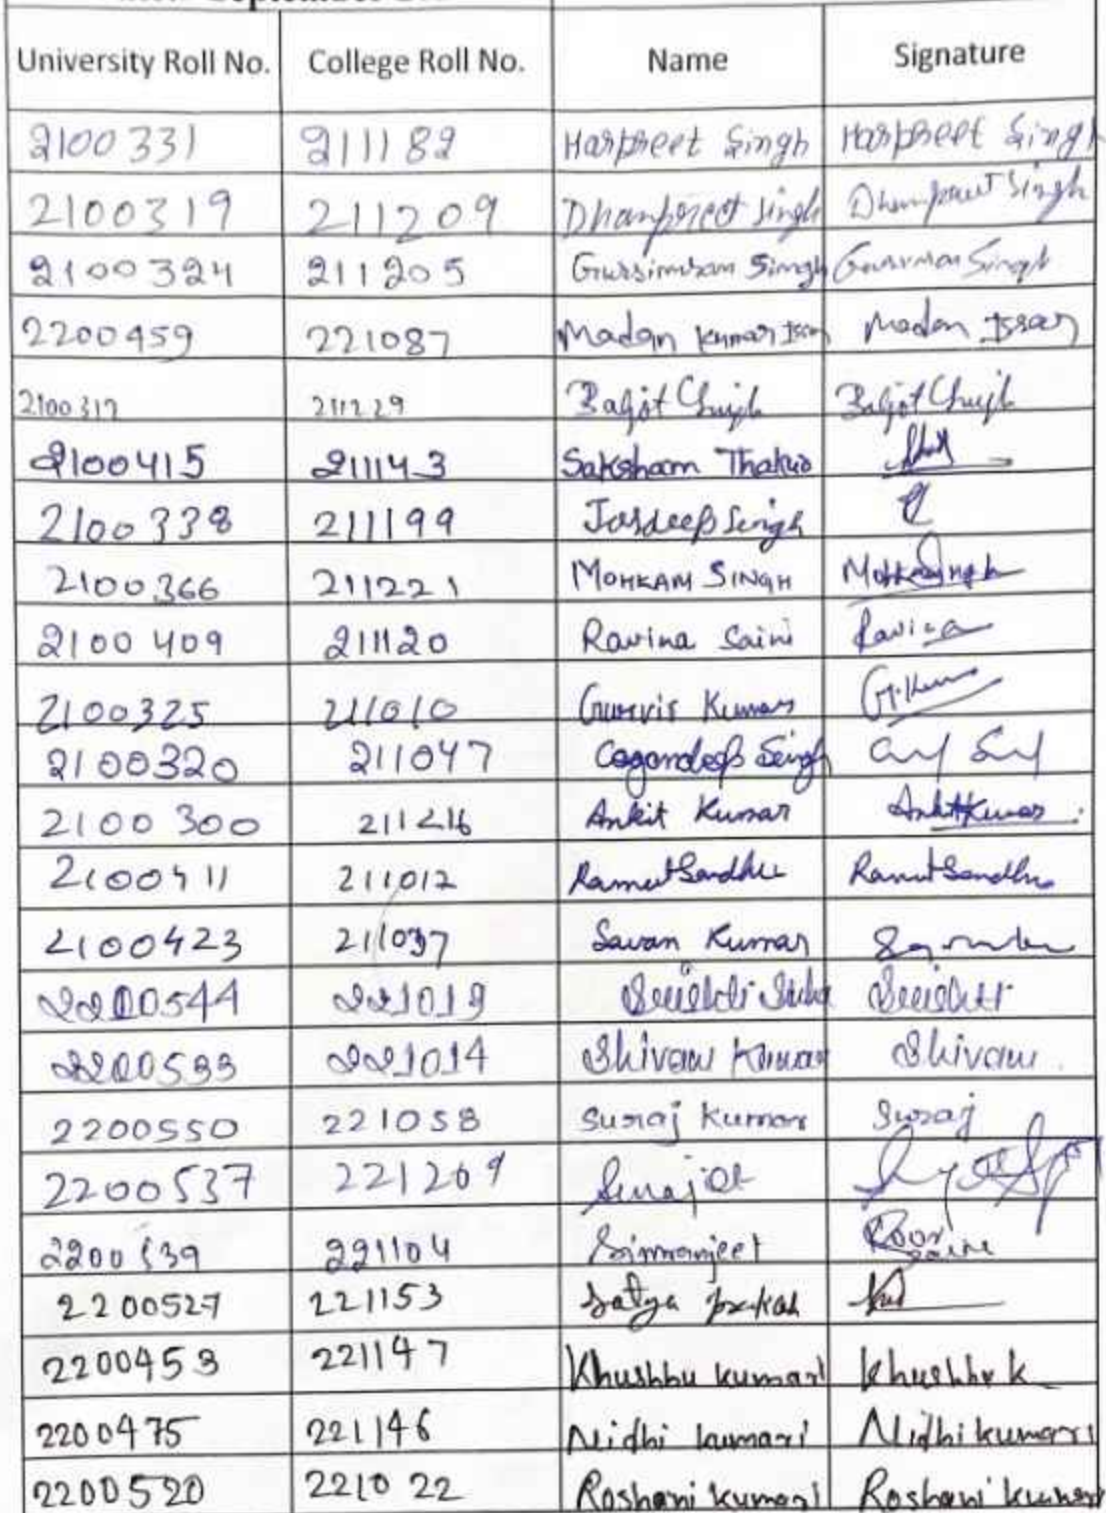 September
University Roll No. College Roll No. Name Signature
2100331 211182 Harpreet Singh Harpreet Singh
2100319 211209 Dhanpreet Singh Dhanpreet Singh
2100324 211205 Gursimran Singh Singh
2200459 221087 Madan Kumar Issar Madan Issar
2100317 211229 Baljot Chugh Baljot Chugh
2100415 211143 Saksham Thakur
2100338 211199 Jasdeep Singh
2100366 211221 MOHKAM SINGH
2100409 211120 Ravina Saini Ravina
2100325 211010 Gurvir Kumar G. Kumar
2100320 211047 Gagandeep Singh
2100300 211216 Ankit Kumar Ankit Kumar
2100411 211012 Ramut Sandhu Ramut Sandhu
2100423 211037 Savan Kumar
2200544 221019
2200533 221014 Shivam Kumar Shivam
2200550 221058 Suraj Kumar Suraj
2200537 221209
2200539 221104 Simranjeet Saini
2200527 221153 Satya
2200453 221147 Khushbu kumari Khushbu k
2200475 221146 Nidhi kumari Nidhi kumari
2200520 221022 Roshani kumari Roshani kumari